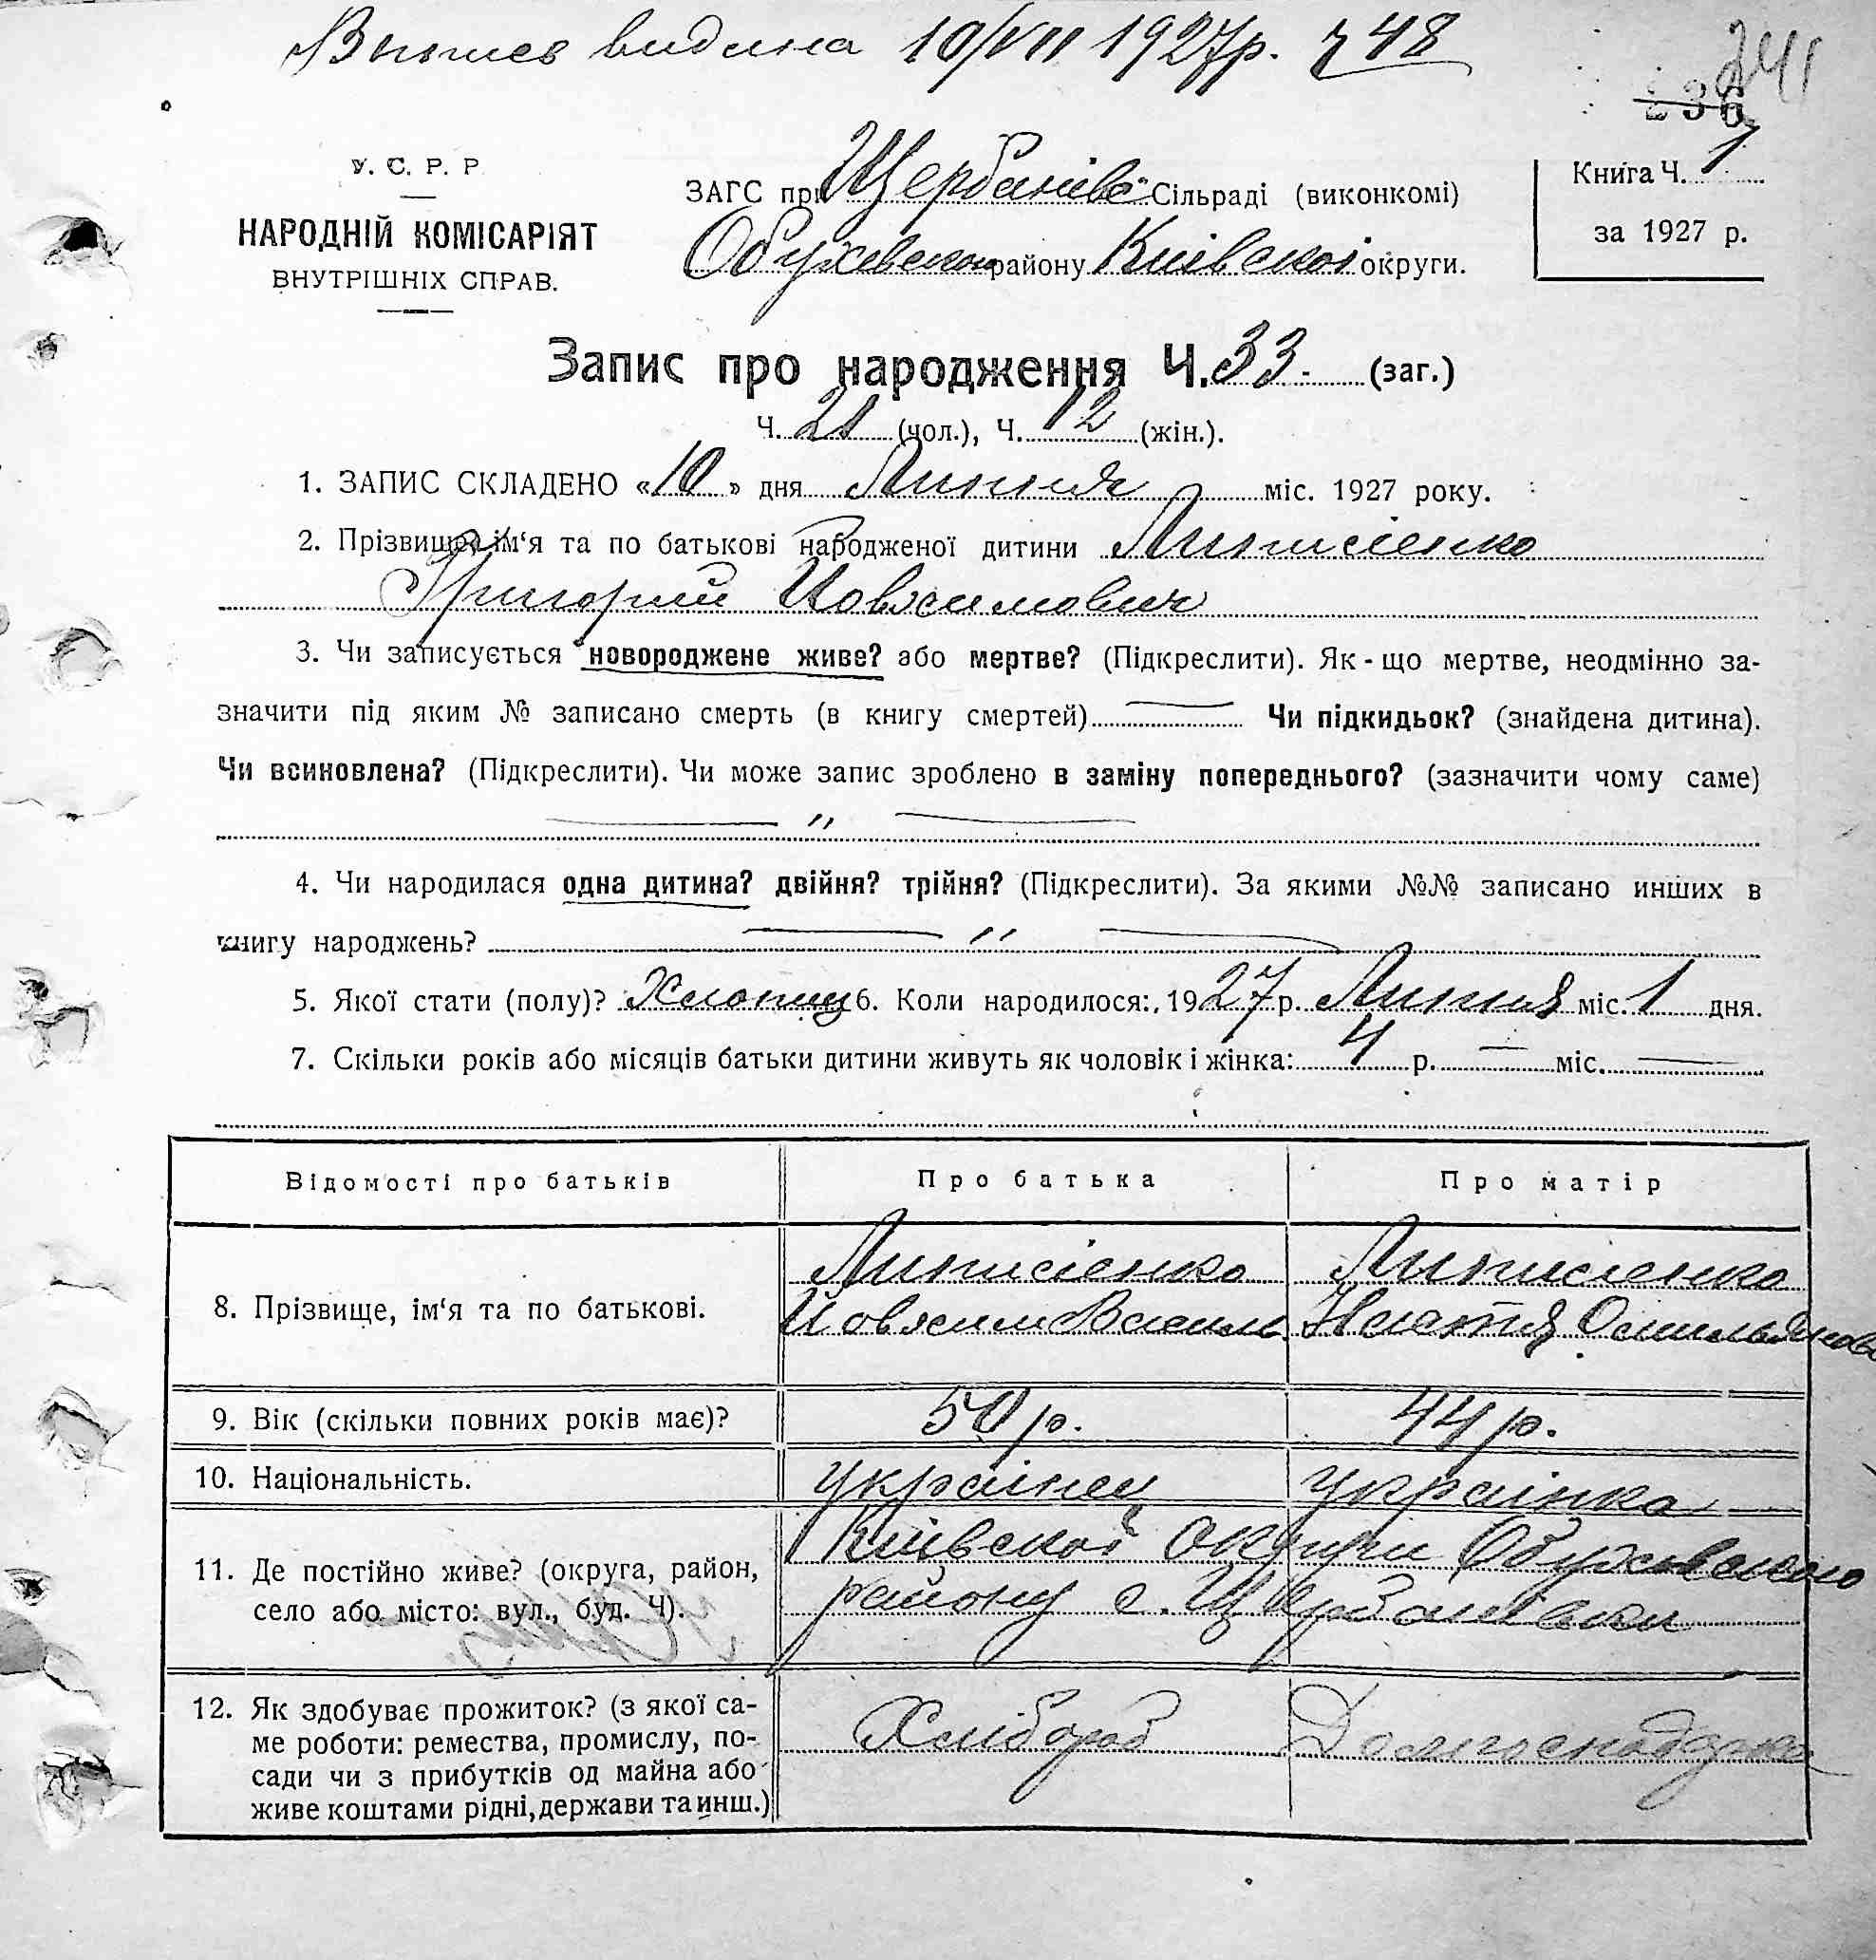 Выпись видана 10/VII 1927р. ч 48
241
236
У. С. Р. Р
НАРОДНІЙ КОМІСАРІЯТ
ВНУТРІШНІХ СПРАВ.
ЗАГС при Щербанівс. Сільраді (виконкомі)
Обухівском району Київскоі округи.
Книга Ч. 1
за 1927 р.
Запис про народження Ч. 33. (заг.)
Ч. 21 (чол.), Ч. 12 (жін.).
1. ЗАПИС СКЛАДЕНО «10» дня Липня міс. 1927 року.
2. Прізвище, ім‘я та по батькові народженої дитини
Григорий
3. Чи записується новороджене живе? або мертве? (Підкреслити). Як-що мертве, неодмінно за-
значити під яким № записано смерть (в книгу смертей) Чи підкидьок? (знайдена дитина).
Чи всиновлена? (Підкреслити). Чи може запис зроблено в заміну попереднього? (зазначити чому саме)
„
4. Чи народилася одна дитина? двійня? трійня? (Підкреслити). За якими №№ записано инших в
книгу народжень? „
5. Якої стати (полу)? Хлопець 6. Коли народилося: 1927 р. Липня міс. 1 дня.
7. Скільки років або місяців батьки дитини живуть як чоловік і жінка: 4 р. — міс. —
Відомості про батьків Про батька Про матір
8. Прізвище, ім‘я та по батькові.
Настя
9. Вік (скільки повних років має)? 50 р. 44 р.
10. Національність. українец українка
11. Де постійно живе? (округа, район,
село або місто: вул., буд. Ч).
Київскоі округи Обуховского
району с. Щербанівки
12. Як здобуває прожиток? (з якої са-
ме роботи: ремества, промислу, по-
сади чи з прибутків од майна або
живе коштами рідні, держави та инш.)
Хлібороб Домгосподарка